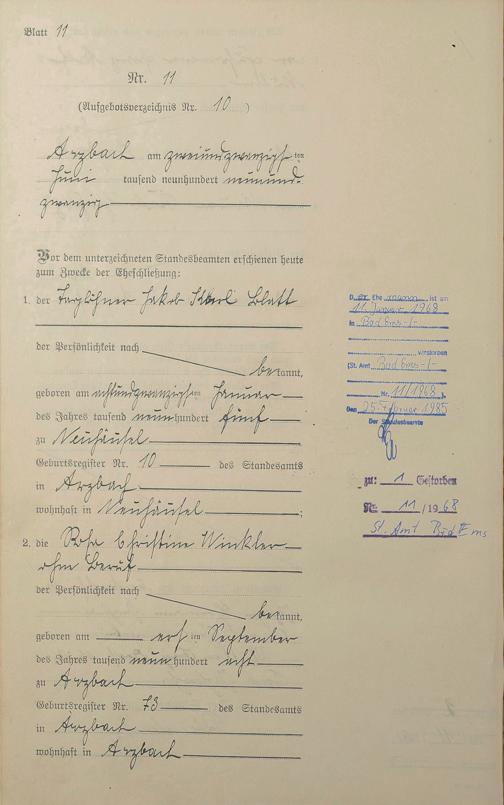 Blatt 11
Nr. 11
(Aufgebotsverzeichnis Nr. 10)
Arzbach am zweiundzwanzigsten
Juni tausend neunhundert neunund-
zwanzig
Vor dem unterzeichneten Standesbeamten erschienen heute
zum Zwecke der Eheschließung:
1. der Taglöhner Jakob Karl Blatt
der Persönlichkeit nach
bekannt,
geboren am achtundzwanzigsten Januar
des Jahres tausend neunhundert fünf
zu Neuhäusel
Geburtsregister Nr. 10 des Standesamts
in Arzbach
wohnhaft in Neuhäusel;
2. die Rosa Christine Winkler
ohne Beruf
der Persönlichkeit nach
bekannt,
geboren am ersten September
des Jahres tausend neunhundert acht
zu Arzbach
Geburtsregister Nr. 73 des Standesamts
in Arzbach
wohnhaft in Arzbach
Der Ehemann ist am
11. Januar 1968
in Bad Ems -/-
verstorben
(St. Amt Bad Ems -/-
Nr. 11/1968).
Den 25. Februar 1985
Der Standesbeamte
zu: 1 Gestorben
Nr. 11/1968
St. Amt Bad Ems